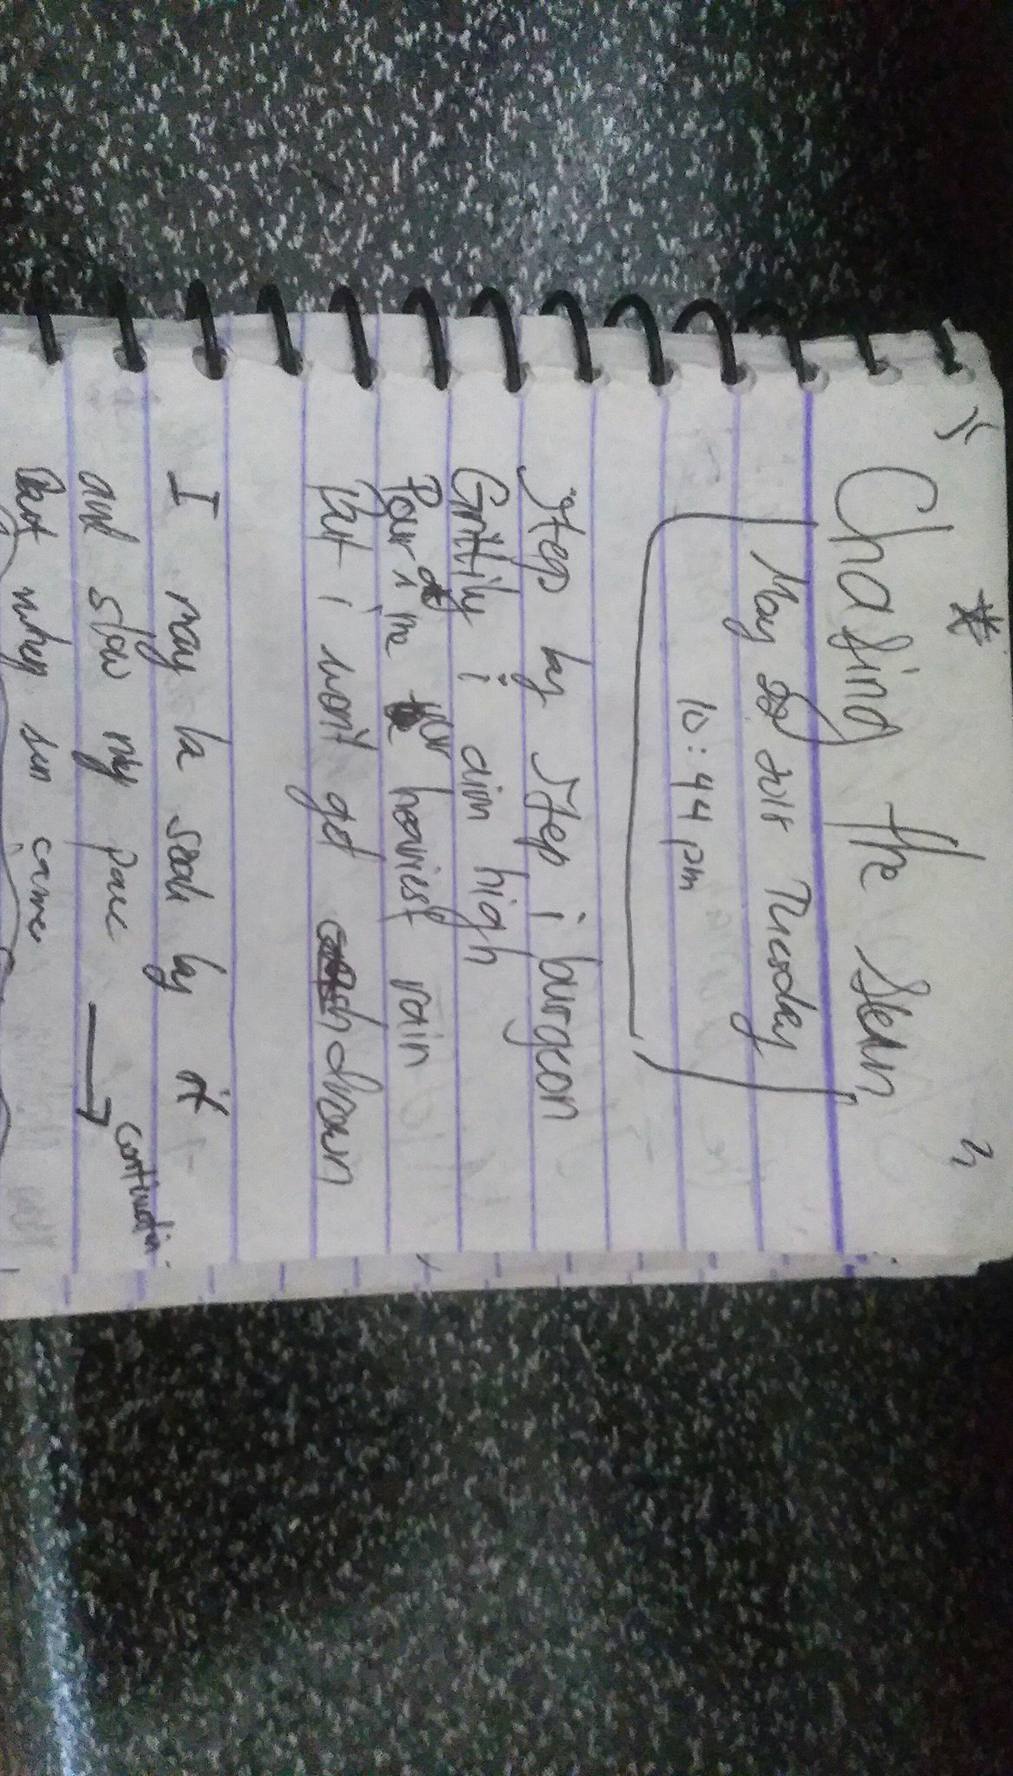 Chasing the
May 2018 Tuesday
10:44 pm
Step by Step i burgeon
Grittily i aim high
Pour in me ur heaviest rain
But i won't get drown
I may be soak by it
and slow my pace
Continuation
But when sun came